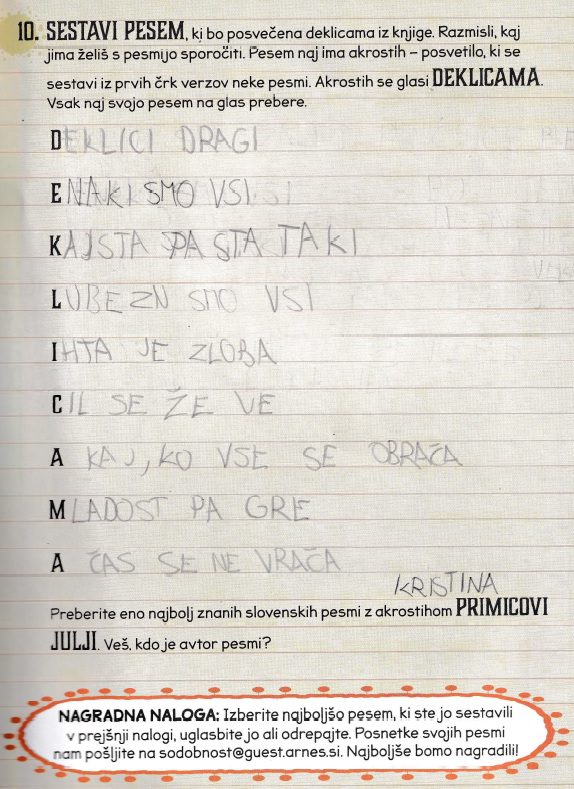 10. SESTAVI PESEM, ki bo posvečena deklicama iz knjige. Razmisli, kaj
jima želiš s pesmijo sporočiti. Pesem naj ima akrostih – posvetilo, ki se
sestavi iz prvih črk verzov neke pesmi. Akrostih se glasi DEKLICAMA.
Vsak naj svojo pesem na glas prebere.
DEKLICI DRAGI
ENAKI SMO VSI
KAJ STA PA STA TAKI
LUBEZN SMO VSI
IHTA JE ZLOBA
CIL SE ŽE VE
A KAJ, KO VSE SE OBRAČA
MLADOST PA GRE
A ČAS SE NE VRAČA
KRISTINA
Preberite eno najbolj znanih slovenskih pesmi z akrostihom PRIMICOVI
JULJI. Veš, kdo je avtor pesmi?
NAGRADNA NALOGA: Izberite najboljšo pesem, ki ste jo sestavili
v prejšnji nalogi, uglasbite jo ali odrepajte. Posnetke svojih pesmi
nam pošljite na sodobnost@guest.arnes.si. Najboljše bomo nagradili!